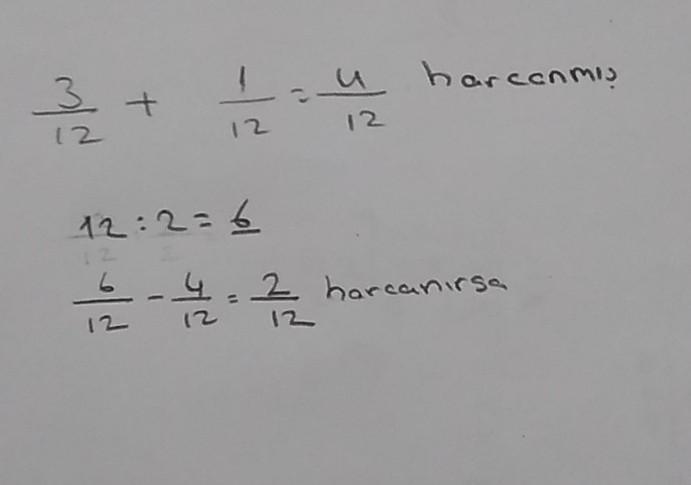 3/12 + 1/12 = 4/12 harcanmış
12 : 2 = 6
6/12 - 4/12 = 2/12 harcanırsa